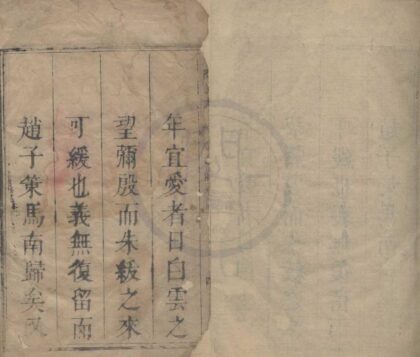 年宜愛者日白雲之
望彌殷而朱紱之來
可緩也義無復留而
趙子策馬南歸矣及